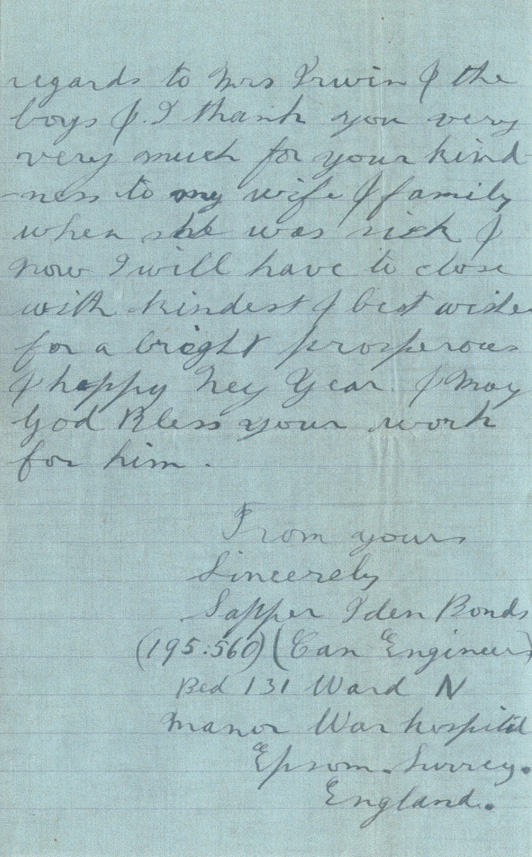 regards to Mrs Irwin & the
boys &. I thank you very
very much for your kind
-ness to my wife & family
when she was sick &
now I will have to close
with kindest & best wishe
for a bright prosperous
& happy Ney Year. & May
God Bless your work
for him.
From yours
Sincerely
Sapper Iden Bonds
(195.560) (Can Engineers
Bed 131 Ward N
Manor War hospital
Epsom. Surrey.
England.